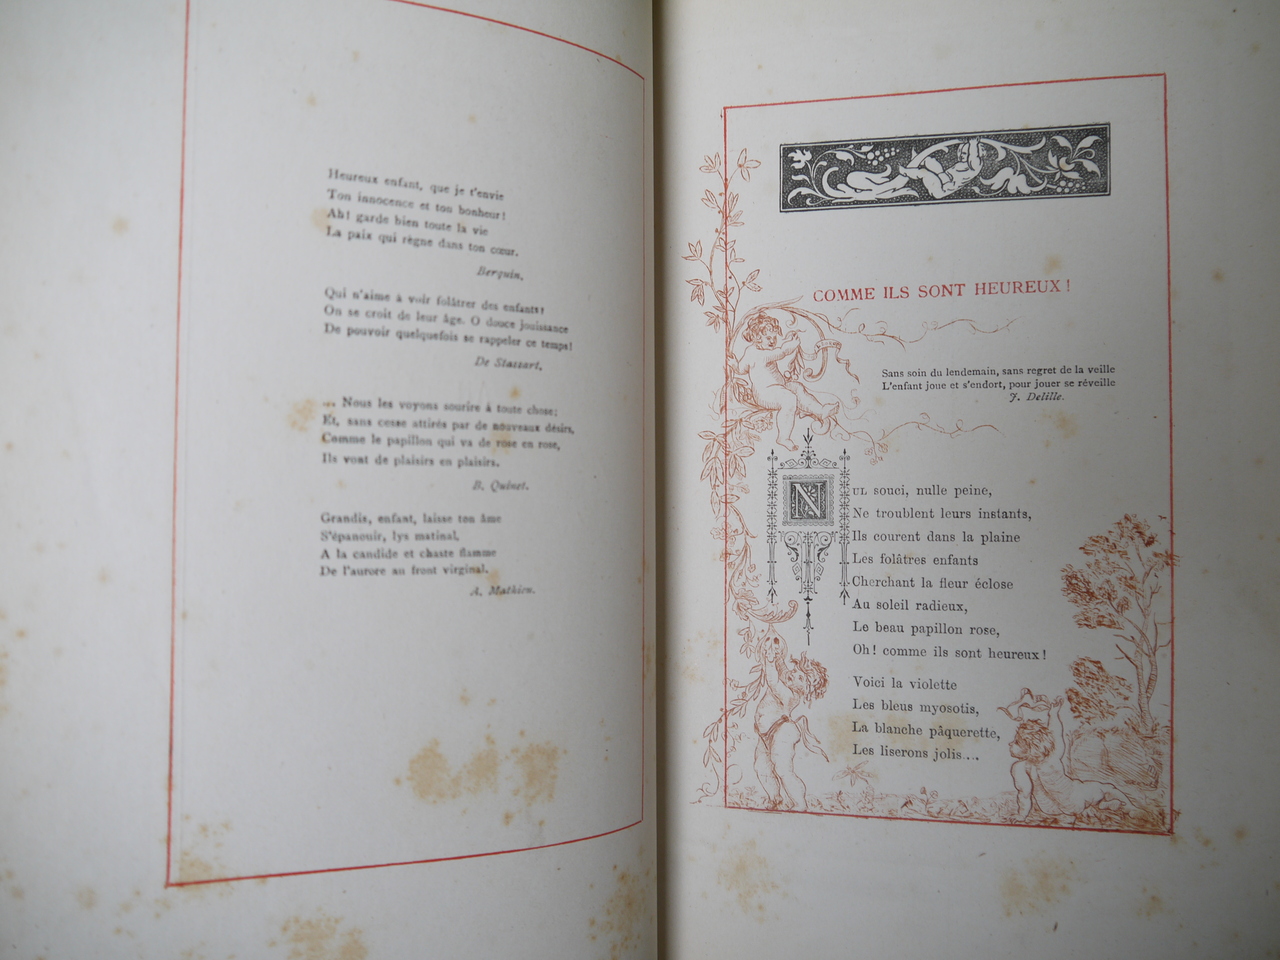 Heureux enfant, que je t'envie
Ton innocence et ton bonheur!
Ah! garde bien toute la vie
La paix qui règne dans ton cœur.
Berquin.
Qui n'aime à voir folâtrer des enfants!
On se croit de leur âge. O douce jouissance
De pouvoir quelquefois se rappeler ce temps!
De Stassart.
... Nous les voyons sourire à toute chose;
Et, sans cesse attirés par de nouveaux désirs,
Comme le papillon qui va de rose en rose,
Ils vont de plaisirs en plaisirs.
B. Quinet.
Grandis, enfant, laisse ton âme
S'épanouir, lys matinal,
A la candide et chaste flamme
De l'aurore au front virginal.
A. Mathieu.
COMME ILS SONT HEUREUX!
Sans soin du lendemain, sans regret de la veille
L'enfant joue et s'endort, pour jouer se réveille
J. Delille.
NUL souci, nulle peine,
Ne troublent leurs instants,
Ils courent dans la plaine
Les folâtres enfants
Cherchant la fleur éclose
Au soleil radieux,
Le beau papillon rose,
Oh! comme ils sont heureux!
Voici la violette
Les bleus myosotis,
La blanche pâquerette,
Les liserons jolis...